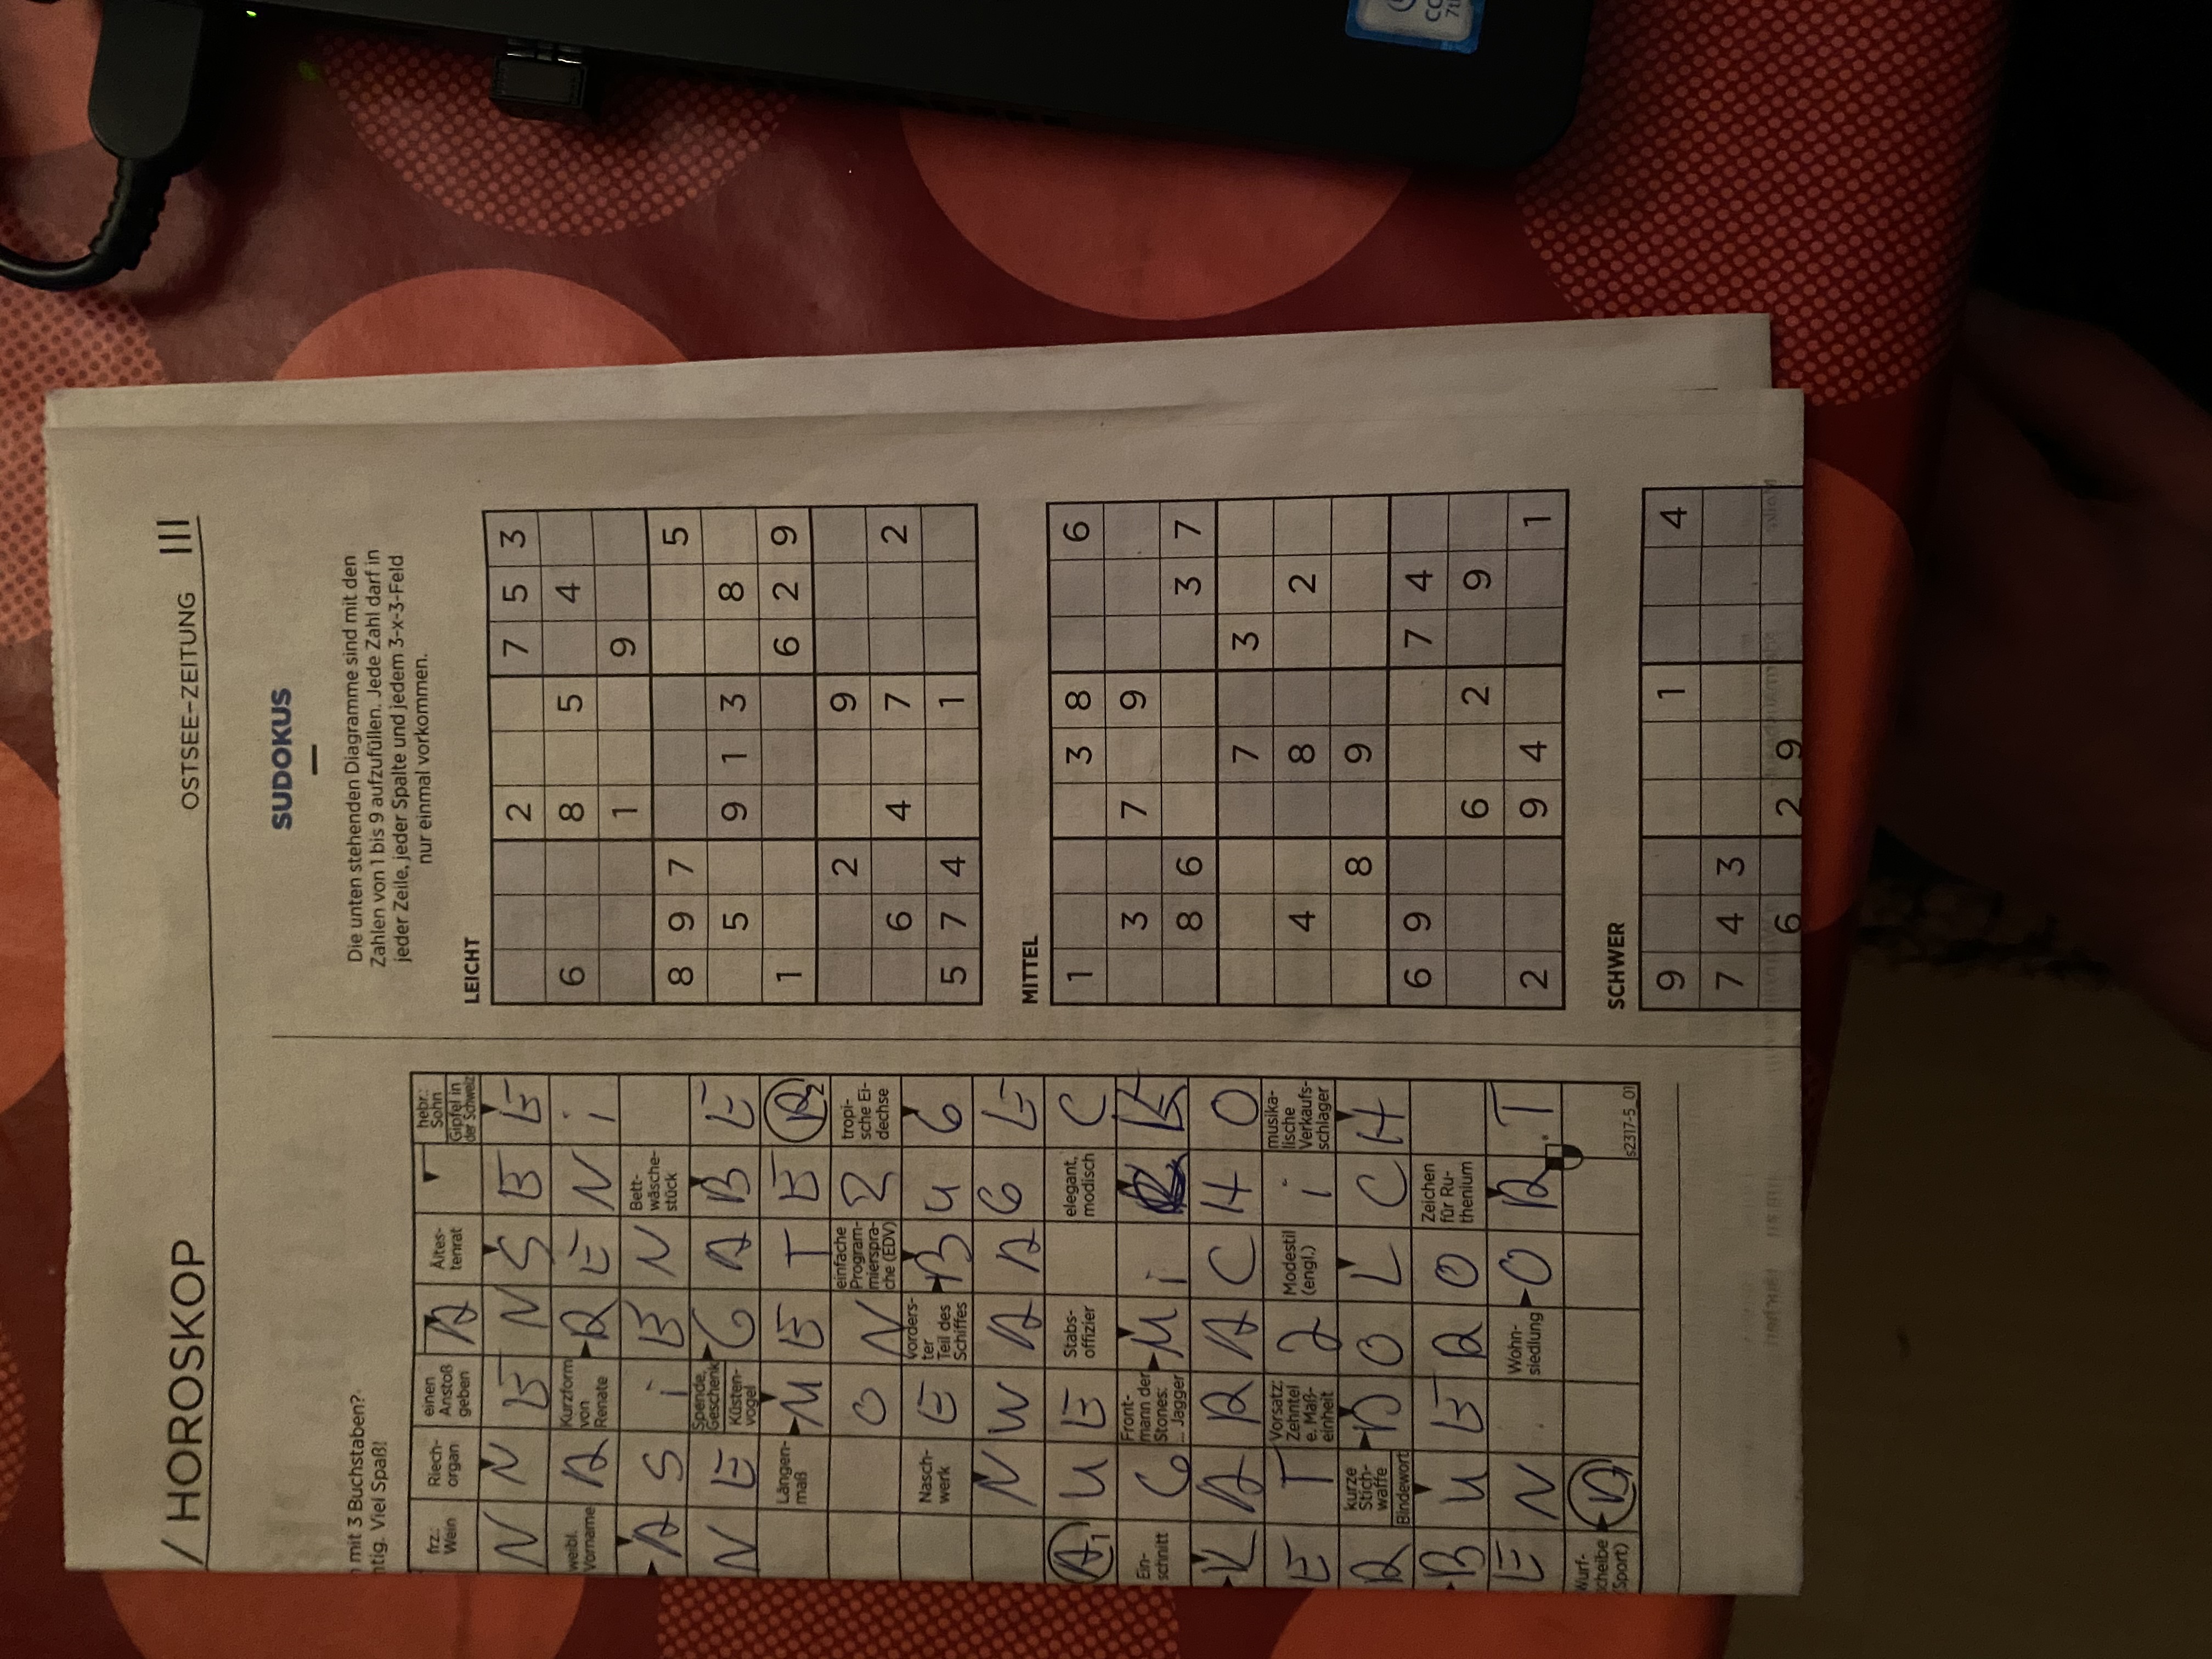 / HOROSKOP
OSTSEE-ZEITUNG III
mit 3 Buchstaben?
htig. Viel Spaß!
frz.: Wein
Riech-
organ
einen
Anstoß
geben
A
Ältes-
tenrat
hebr.:
Sohn
Gipfel in
der Schweiz
N N E N S E E
weibl.
Vorname
A
Kurzform
von
Renate
R E N i
A S i E N
Bett-
wäsche-
stück
N E
Spende,
Geschenk
Küsten-
vogel
G A B E
Längen-
maß
M E T E R 2
O N
einfache
Program-
mierspra-
che (EDV)
Z
tropi-
sche Ei-
dechse
Nasch-
werk
E
vorders-
ter
Teil des
Schiffes
B U G
N W A A G E
A 1 U E
Stabs-
offizier
elegant,
modisch
C
Ein-
schnitt
G
Front-
mann der
Stones:
... Jagger
M i K
K A R A C H O
E T
Vorsatz:
Zehntel
e. Maß-
einheit
J
Modestil
(engl.)
i
musika-
lische
Verkaufs-
schlager
R
kurze
Stich-
waffe
Bindewort
D O L C H
B U E R O
Zeichen
für Ru-
thenium
E N
Wohn-
siedlung
O R T
Wurf-
scheibe
(Sport)
D
s2317-5_01
SUDOKUS
Die unten stehenden Diagramme sind mit den
Zahlen von 1 bis 9 aufzufüllen. Jede Zahl darf in
jeder Zeile, jeder Spalte und jedem 3-x-3-Feld
nur einmal vorkommen.
LEICHT
2 7 5 3
6 8 5 4
1 9
8 9 7 5
5 9 1 3 8
1 6 2 9
2 9
6 4 7 2
5 7 4 1
MITTEL
1 3 8 6
3 7 9
8 6 3 7
7 3
4 8 2
8 9
6 9 7 4
6 2 9
2 9 4 1
SCHWER
9 1 4
7 4 3
6 2 9